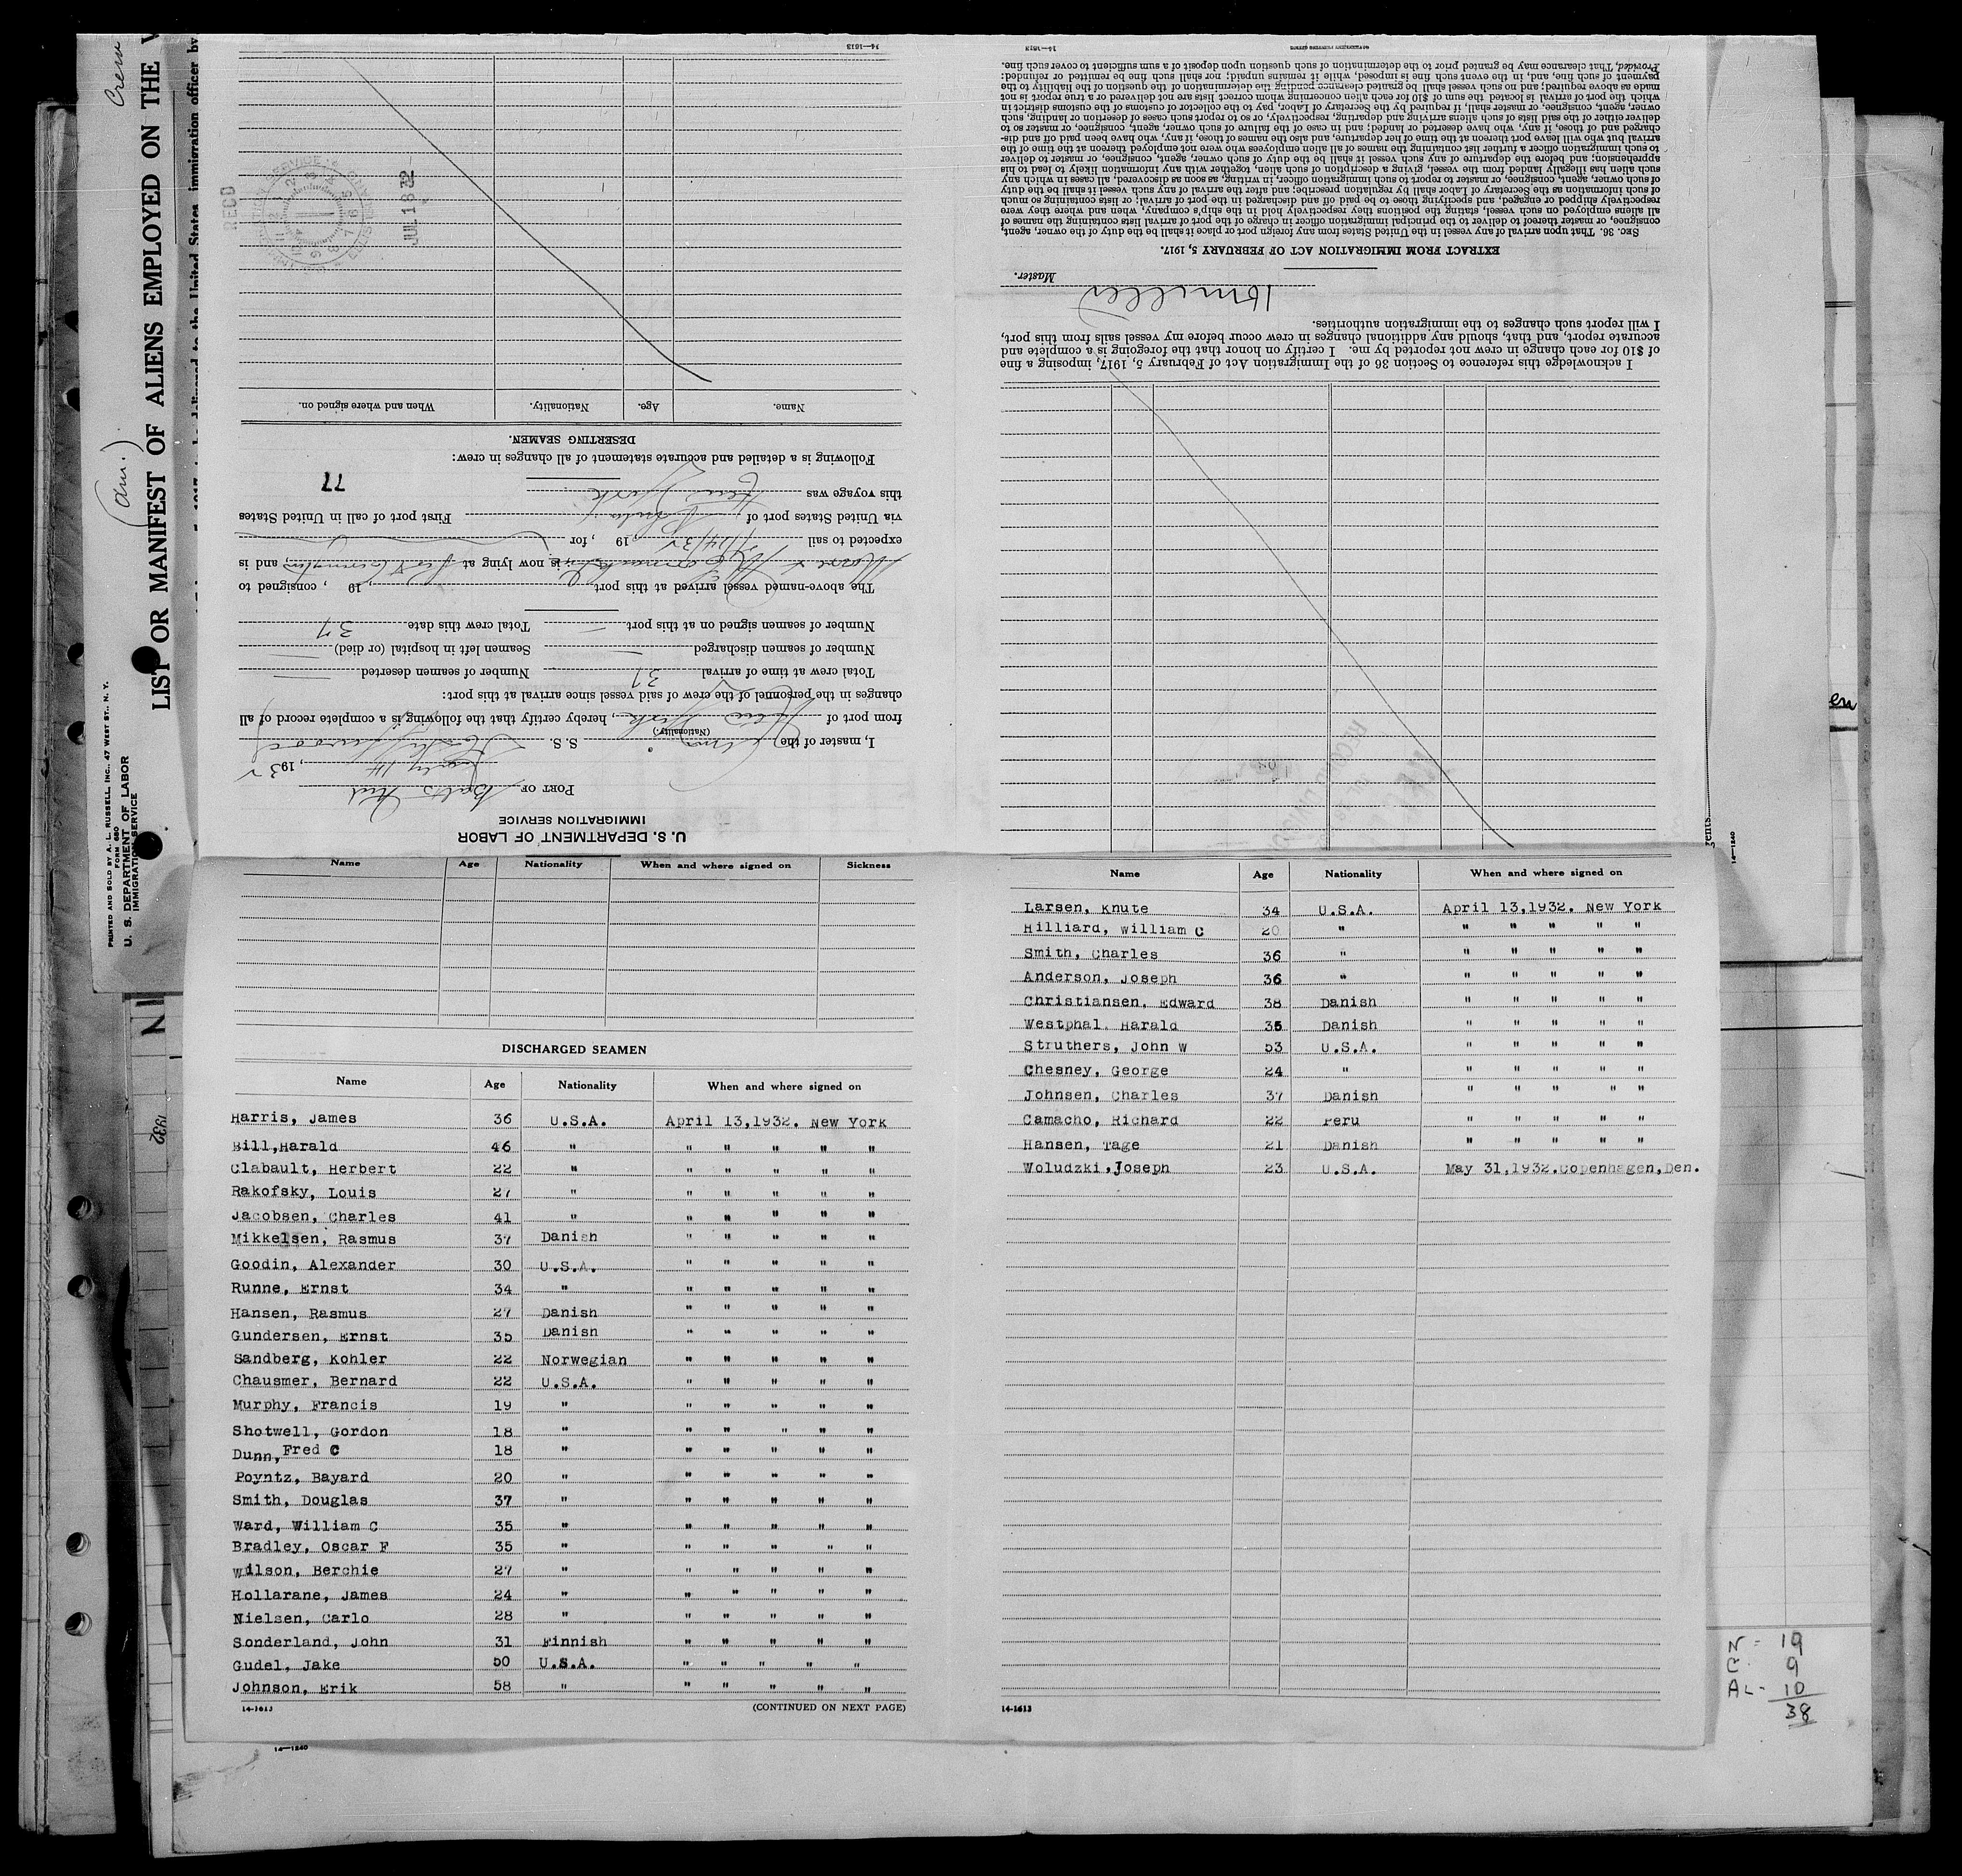 Crew
(am.)
LIST OR MANIFEST OF ALIENS EMPLOYED ON THE V
PRINTED AND SOLD BY A. L. RUSSELL, INC., 47 WEST ST., N. Y.
FORM 680
U. S. DEPARTMENT OF LABOR
IMMIGRATION SERVICE
U. S. DEPARTMENT OF LABOR
IMMIGRATION SERVICE
PORT OF Balto Md
July 14, 1932
I, master of the S. S.
(Nationality.)
from port of New York, hereby certify that the following is a complete record of all
changes in the personnel of the crew of said vessel since arrival at this port:
Total crew at time of arrival 37 Number of seamen deserted
Number of seamen discharged Seamen left in hospital (or died)
Number of seamen signed on at this port Total crew this date 37
The above-named vessel arrived at this port, 19 , consigned to
Moore & McCormack is now lying at, and is
expected to sail 7/14/32 19 , for
via United States port of First port of call in United States
this voyage was New York 77
Following is a detailed and accurate statement of all changes in crew:
DESERTING SEAMEN.
Name. Age. Nationality. When and where signed on.
RECD
JUL 18 32
14—1613
I acknowledge this reference to Section 36 of the Immigration Act of February 5, 1917, imposing a fine
of $10 for each change in crew not reported by me. I certify on honor that the foregoing is a complete and
accurate report, and that, should any additional changes in crew occur before my vessel sails from this port,
I will report such changes to the immigration authorities.
Master.
EXTRACT FROM IMMIGRATION ACT OF FEBRUARY 5, 1917.
SEC. 36. That upon arrival of any vessel in the United States from any foreign port or place it shall be the duty of the owner, agent,
consignee, or master thereof to deliver to the principal immigration officer in charge of the port of arrival lists containing the names of
all aliens employed on such vessel, stating the positions they respectively hold in the ship's company, when and where they were
respectively shipped or engaged, and specifying those to be paid off and discharged in the port of arrival; or lists containing so much
of such information as the Secretary of Labor shall by regulation prescribe; and after the arrival of any such vessel it shall be the duty
of such owner, agent, consignee, or master to report to such immigration officer, in writing, as soon as discovered, all cases in which any
such alien has illegally landed from the vessel, giving a description of such alien, together with any information likely to lead to his
apprehension; and before the departure of any such vessel it shall be the duty of such owner, agent, consignee, or master to deliver
to such immigration officer a further list containing the names of all alien employees who were not employed thereon at the time of the
arrival but who will leave port thereon at the time of her departure, and also the names of those, if any, who have been paid off and dis-
charged and of those, if any, who have deserted or landed; and in case of the failure of such owner, agent, consignee, or master so to
deliver either of the said lists of such aliens arriving and departing, respectively, or so to report such cases of desertion or landing, such
owner, agent, consignee, or master shall, if required by the Secretary of Labor, pay to the collector of customs of the customs district in
which the port of arrival is located the sum of $10 for each alien concerning whom correct lists are not delivered or a true report is not
made as above required; and no such vessel shall be granted clearance pending the determination of the question of the liability to the
payment of such fine, and, in the event such fine is imposed, while it remains unpaid; nor shall such fine be remitted or refunded:
Provided, That clearance may be granted prior to the determination of such question upon deposit of a sum sufficient to cover such fine.
14—1613
GOVERNMENT PRINTING OFFICE
Name Age Nationality When and where signed on Sickness
DISCHARGED SEAMEN
Name Age Nationality When and where signed on
Harris, James 36 U.S.A. April 13,1932. New York
Bill,Harald 46 " " " " " "
Clabault, Herbert 22 " " " " " "
Rakofsky, Louis 27 " " " " " "
Jacobsen, Charles 41 " " " " " "
Mikkelsen, Rasmus 37 Danish " " " " "
Goodin, Alexander 30 U.S.A. " " " " "
Runne, Ernst 34 " " " " " "
Hansen, Rasmus 27 Danish " " " " "
Gundersen, Ernst 35 Danish " " " " "
Sandberg, Kohler 22 Norwegian " " " " "
Chausmer, Bernard 22 U.S.A. " " " " "
Murphy, Francis 19 " " " " " "
Shotwell, Gordon 18 " " " " " "
Dunn, Fred C 18 " " " " " "
Poyntz, Bayard 20 " " " " " "
Smith, Douglas 37 " " " " " "
Ward, William C 35 " " " " " "
Bradley, Oscar F 35 " " " " " "
Wilson, Berchie 27 " " " " " "
Hollarane, James 24 " " " " " "
Nielsen, Carlo 28 " " " " " "
Sonderland, John 31 Finnish " " " " "
Gudel, Jake 50 U.S.A. " " " " "
Johnson, Erik 58 " " " " " "
14-1613 (CONTINUED ON NEXT PAGE)
Name Age Nationality When and where signed on
Larsen, Knute 34 U.S.A. April 13,1932. New York
Hilliard, William C 20 " " " " " "
Smith, Charles 36 " " " " " "
Anderson, Joseph 36 " " " " " "
Christiansen, Edward 38 Danish " " " " "
Westphal. Harald 35 Danish " " " " "
Struthers, John W 53 U.S.A. " " " " "
Chesney, George 24 " " " " " "
Johnsen, Charles 37 Danish " " " " "
Camacho, Richard 22 Peru " " " " "
Hansen, Tage 21 Danish " " " " "
Woludzki,Joseph 23 U.S.A. May 31,1932.Copenhagen,Den.
14-1613
14—1240
14—1240
1932
N - 19
C - 9
AL - 10
38